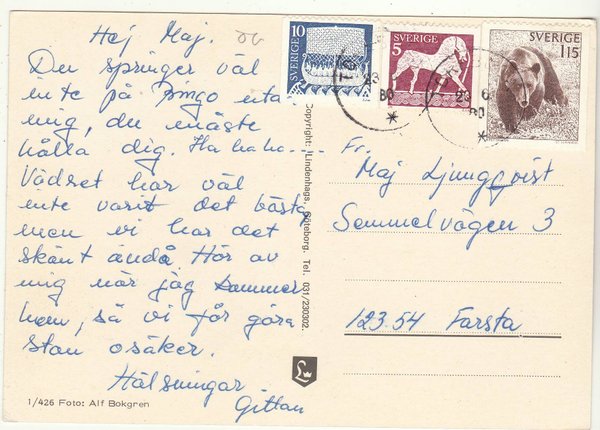 Hej Maj.
Du springer väl
inte på Bingo utan
mig, du måste
hålla dig. Ha ha ha...
Vädret har väl
inte varit det bästa,
men vi har det
skönt ändå Hör av
mig när jag kommer
hem, så vi får göra
stan osäker.
Hälsningar
Gittan
1/426 Foto: Alf Bokgren
Copyright: Lindenhags, Göteborg. Tel. 031/230302.
L
SVERIGE 10
SVERIGE 5
SVERIGE
115
23
80
23 6
80
Fr.
Maj Ljungqvist
Semmelvägen 3
123 54 Farsta